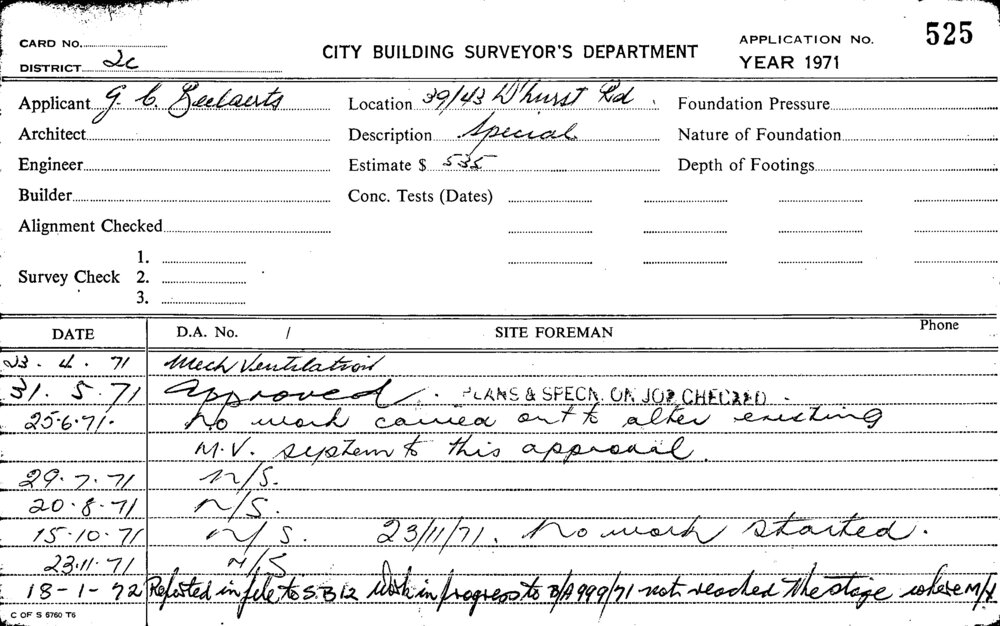 CARD No.
DISTRICT 2c
CITY BUILDING SURVEYOR'S DEPARTMENT
APPLICATION No. 525
YEAR 1971
Applicant G. C. Beelaerts Location 39/43 D'hurst Rd. Foundation Pressure
Architect Description Special Nature of Foundation
Engineer Estimate $ 535 Depth of Footings
Builder Conc. Tests (Dates)
Alignment Checked
1.
Survey Check 2.
3.
DATE D.A. No. / SITE FOREMAN Phone
23. 4. 71 Mech Ventilation
31. 5. 71 Approved. PLANS & SPECN. ON JOB CHECKED.
25.6.71. No work carried out to alter existing
M.V. system to this approval.
29.7.71 N/S.
20.8.71 N/S.
15.10.71 N/S. 23/11/71. No work started.
23.11.71 N/S
18-1-72 Reported in file to S.B12 Work in progress to B/A 999/71 not reached the stage where M/V
C OF S 6760 T6